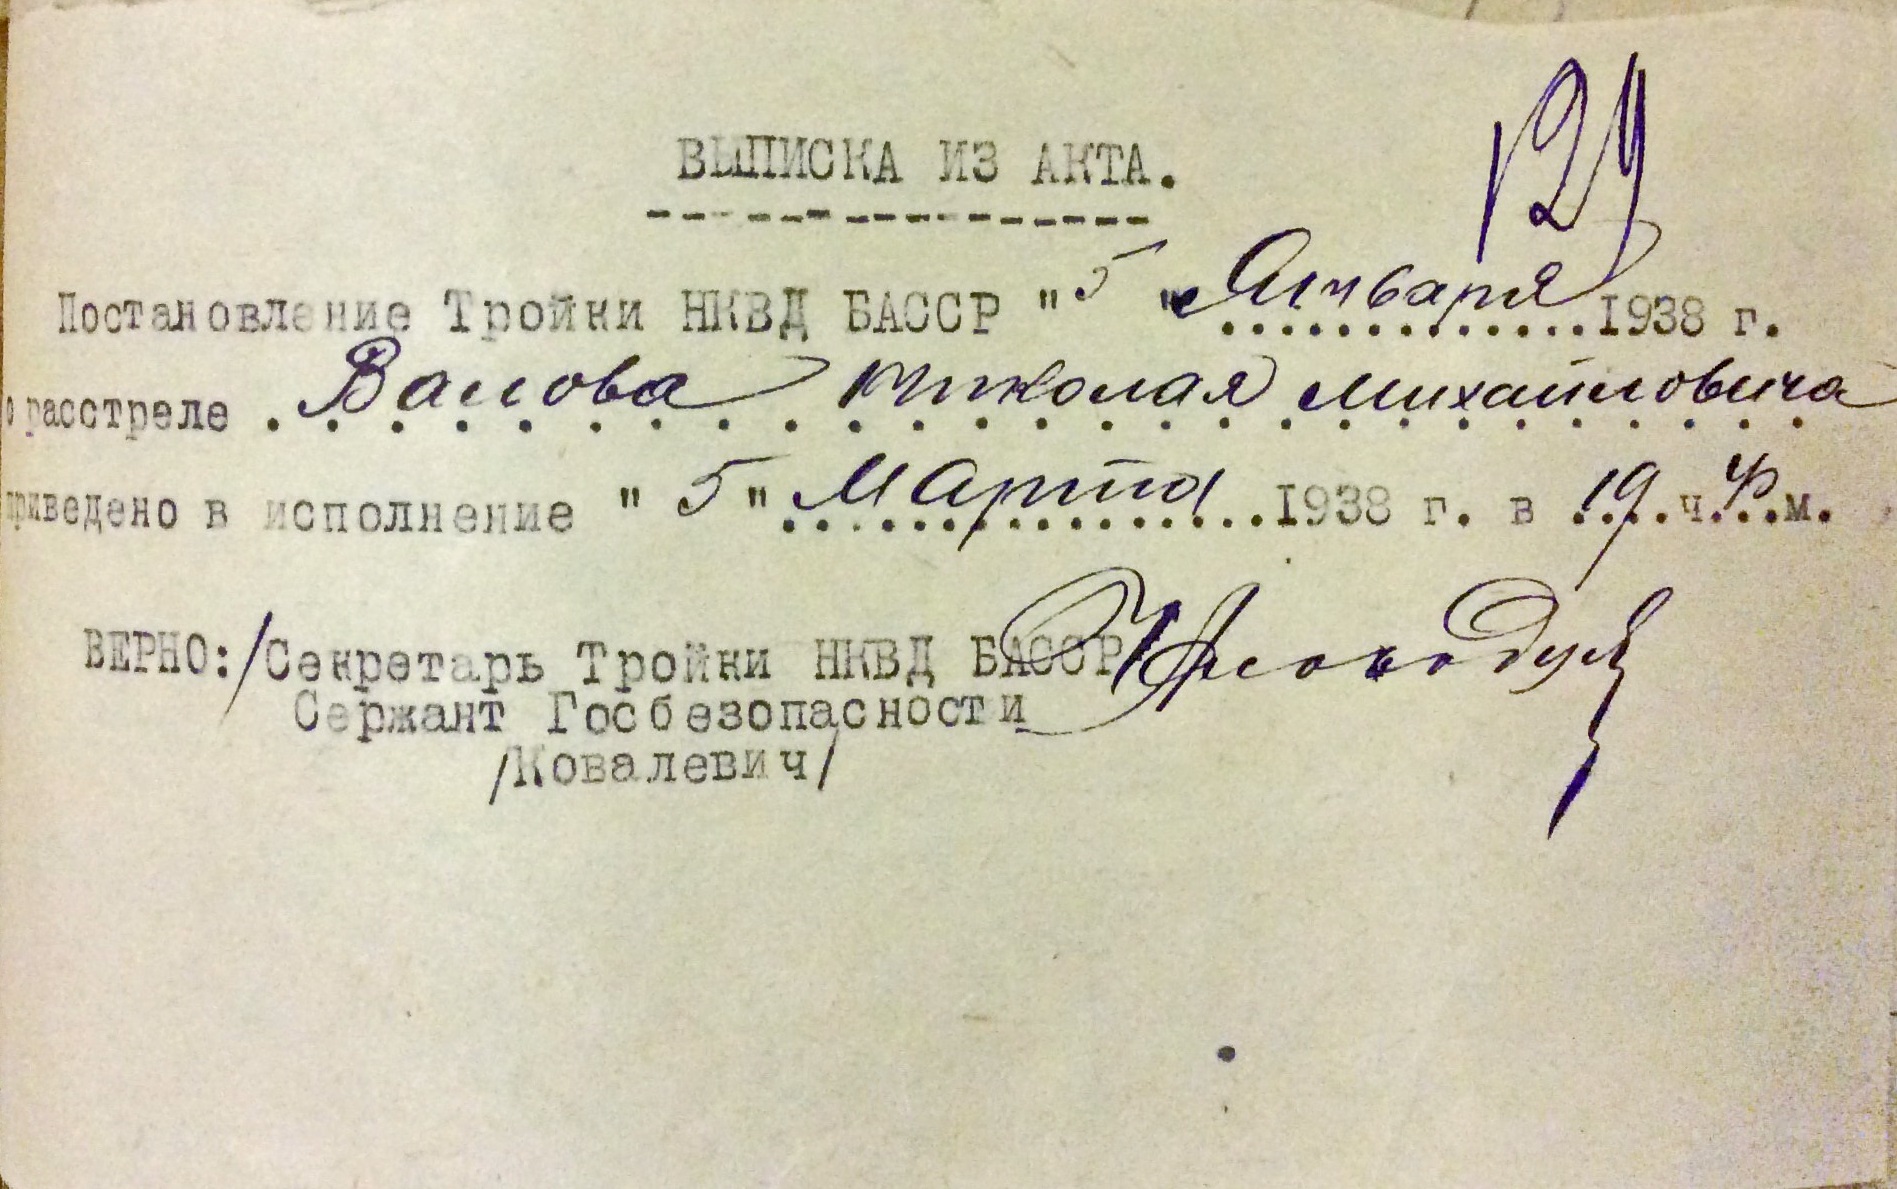 124
ВЫПИСКА ИЗ АКТА.
Постановление Тройки НКВД БАССР "5" Января 1938 г.
о расстреле Валова Николая Михайловича
приведено в исполнение "5" Марта 1938 г. в 19 ч. м.
ВЕРНО:/Секретарь Тройки НКВД БАССР
Сержант Госбезопасности
/Ковалевич/